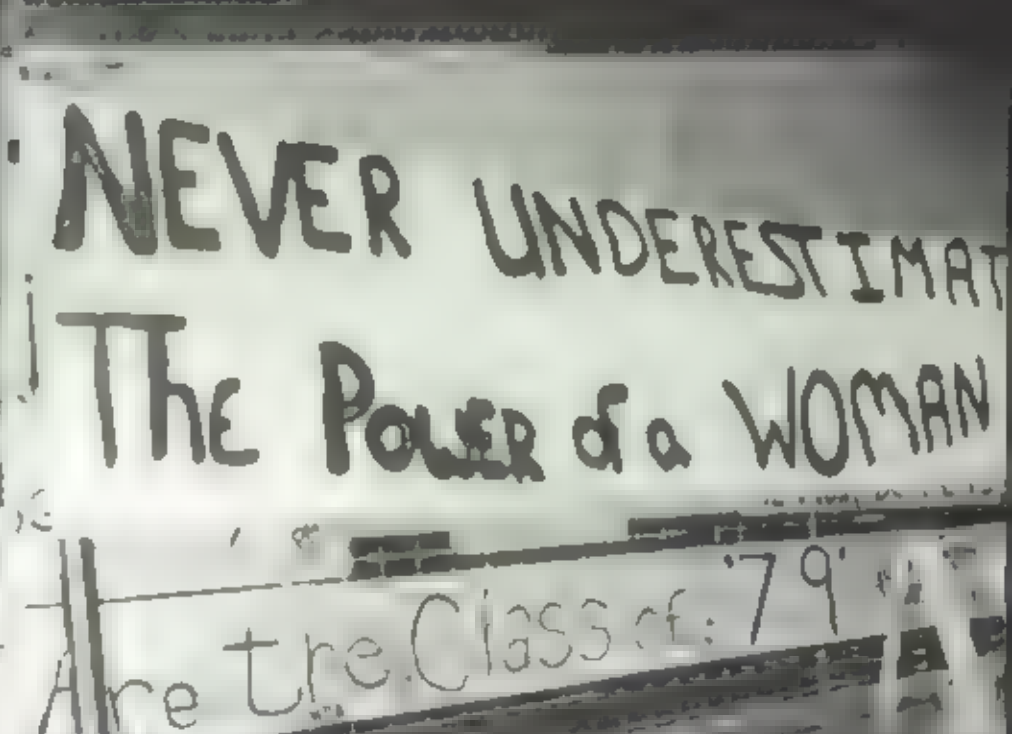 NEVER UNDERESTIMAT
The Power of a WOMAN
Are the Class of: '79'